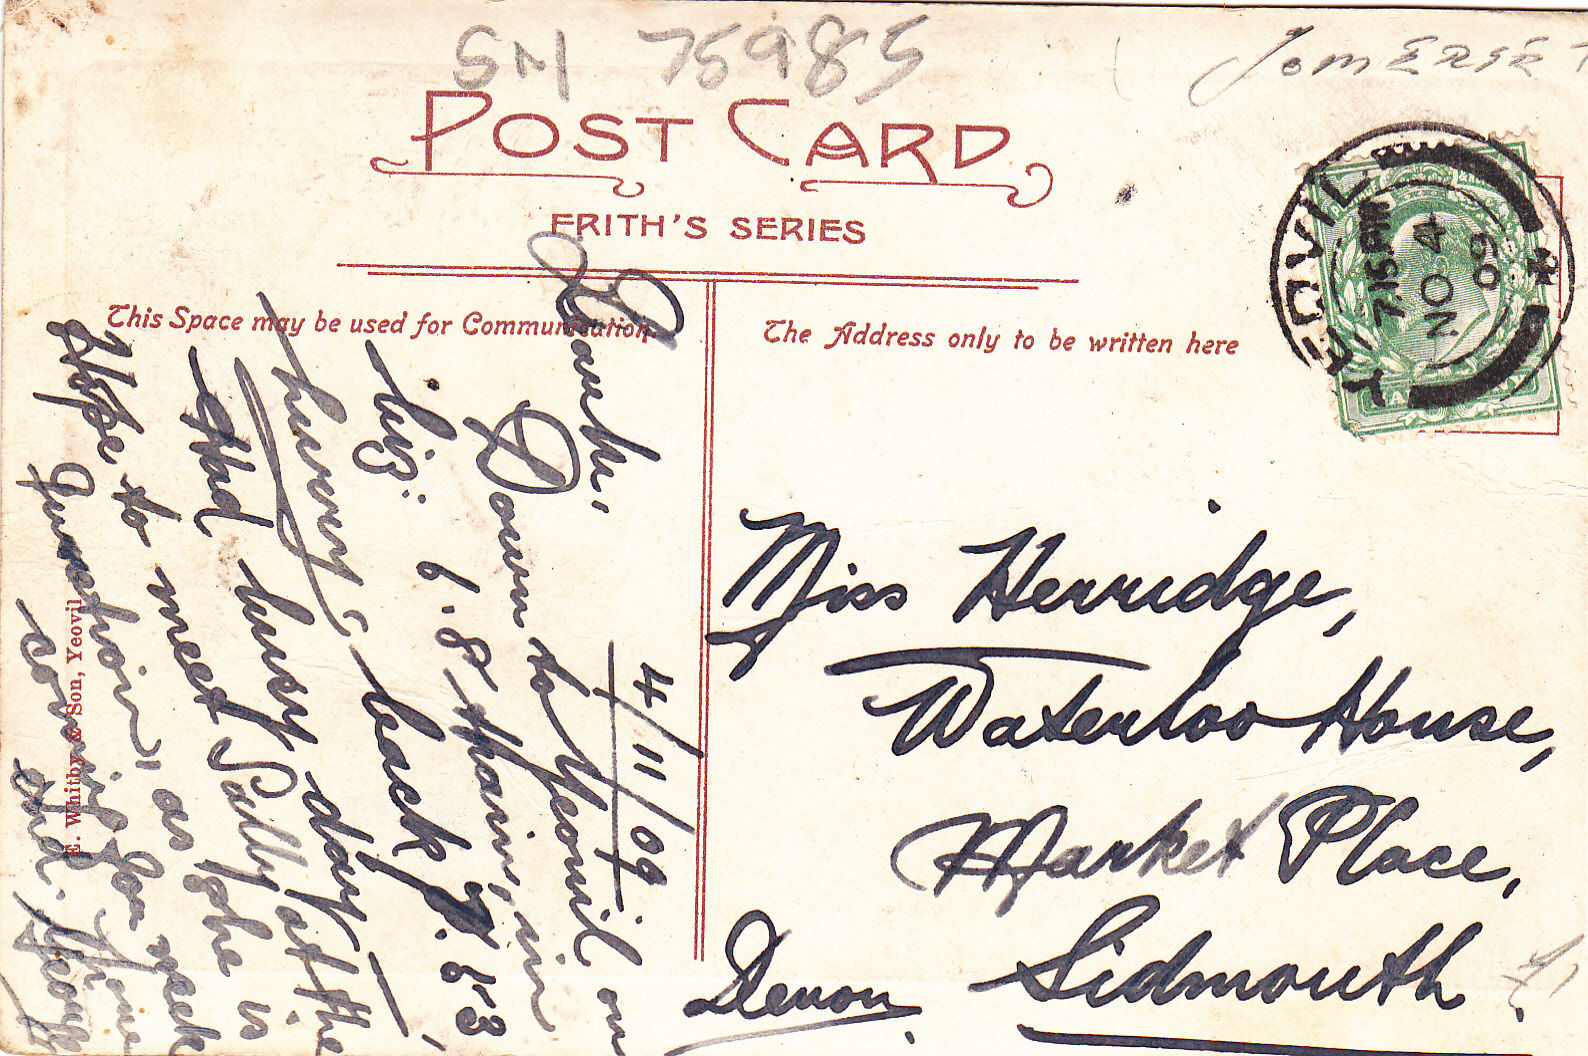 SN 75985
SOMERSET
POST CARD
FRITH'S SERIES
This Space may be used for Communication.
The Address only to be written here
YEOVIL
7.15 PM
NO 4
09
4/11/09
Down to Yeovil on
6.8 train, in
biz. back 7.53,
hurry
Had busy day —
Hope to meet Sally at the
Junction, as she is
coming for week
end. Yours
E. Whitby & Son, Yeovil
Miss Herridge,
Waterloo House,
Market Place,
Sidmouth
Devon.